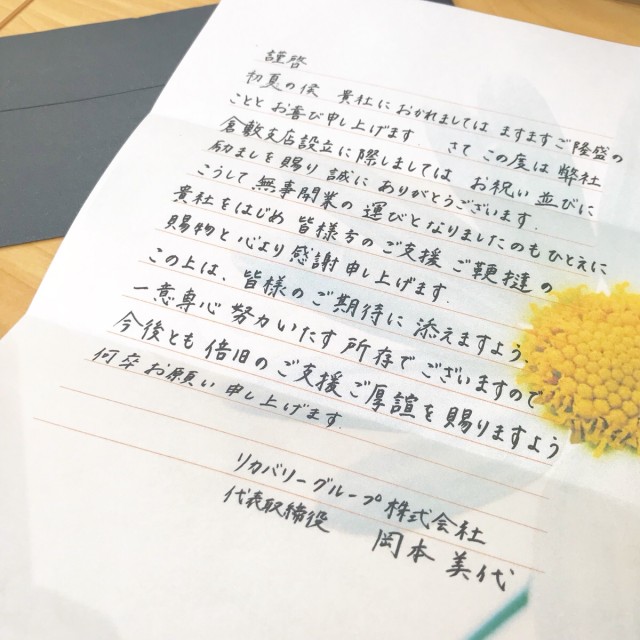 謹啓
初夏の候 貴社におかれましては ますますご隆盛の
こととお喜び申し上げます. さて この度は 弊社
倉敷支店設立に際しましては お祝い並びに
励ましを賜り 誠にありがとうございます.
こうして 無事開業の運びとなりましたのもひとえに
貴社をはじめ 皆様方のご支援 ご鞭撻の
賜物と心より感謝申し上げます.
この上は、皆様のご期待に添えますよう、
一意専心 努力いたす所存でございますので
今後とも 倍旧のご支援ご厚誼を賜りますよう
何卒お願い申し上げます.
リカバリーグループ株式会社
代表取締役 岡本 美代